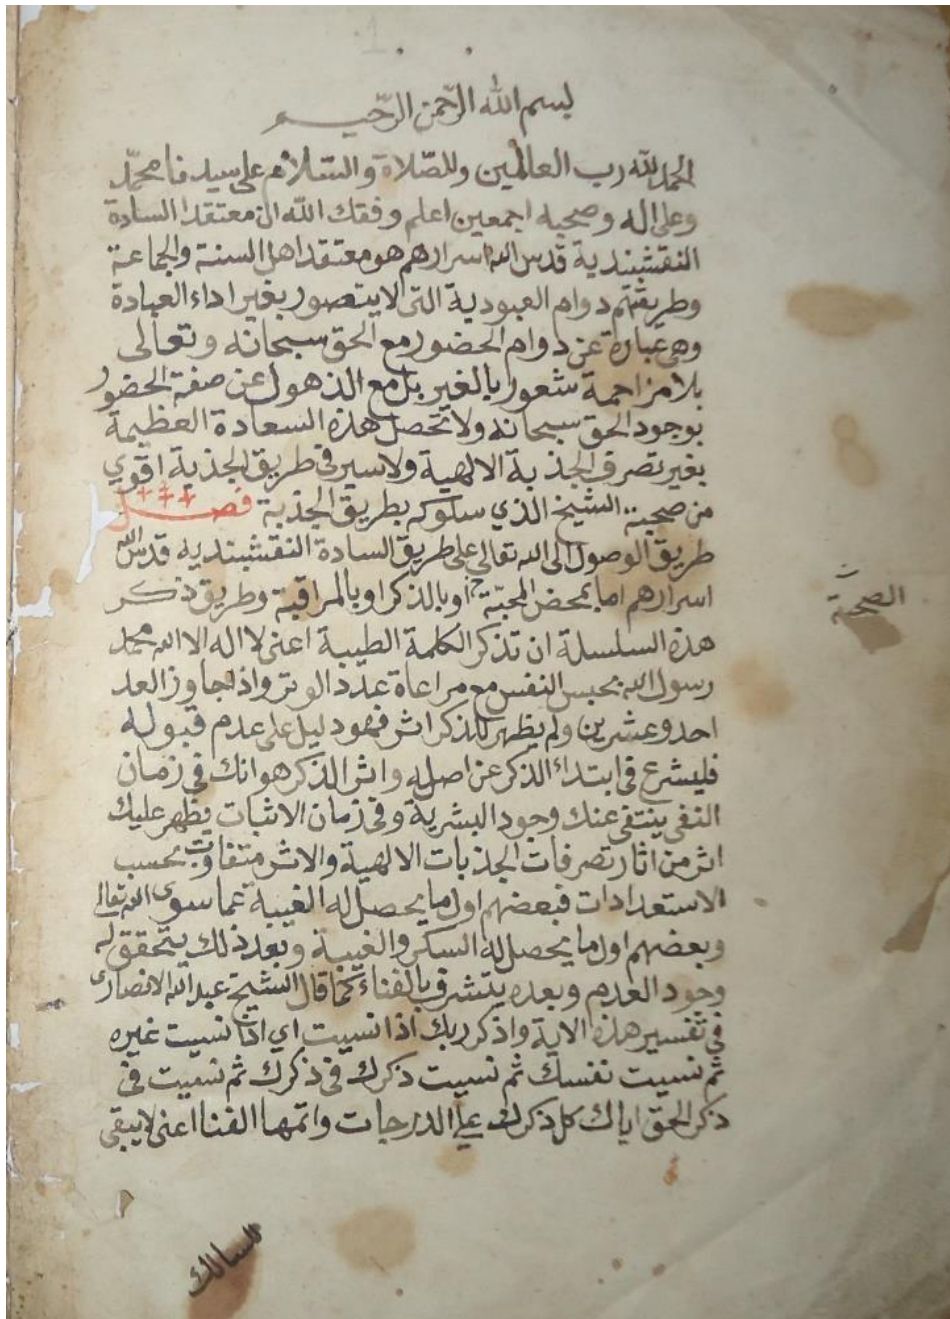 بسم الله الرّحمن الرّحيم
الحمد لله رب العالمين والصّلاة والسّلام على سيدنا محمّد
وعلى اله وصحبه اجمعين اعلم وفقك الله ان معتقد السادة
النقشبندية قدس الله اسرارهم هو معتقد اهل السنة والجماعة
وطريقتهم دوام العبودية التى لا يتصور بغير اداء العبادة
وهى عبارة عن دوام الحضور مع الحق سبحانه وتعالى
بلا مزاحمة شعور بالغير بل مع الذهول عن صفة الحضور
بوجود الحق سبحانه ولا تحصل هذه السعادة العظيمة
بغير تصرف الجذبة الالهية ولا سير فى طريق الجذبة اقوي
من صحبة الشيخ الذي سلوكه بطريق الجذبة فصل
طريق الوصول الى الله تعالى على طريق السادة النقشبندية قدس الله
اسرارهم اما بمحض المحبّة اوبالذكر اوبالمراقبة وطريق ذكر
الصحبة
هذه السلسلة ان تذكر الكلمة الطيبة اعنى لا اله الا الله محمد
رسول الله بحبس النفس مع مراعاة عدد الوتر واذا تجاوز العد
احد وعشرين ولم يظهر للذكر اثر فهو دليل على عدم قبوله
فليشرع فى ابتداء الذكر عن اصله واثر الذكر هو انك فى زمان
النفى ينتفى عنك وجود البشرية وفى زمان الاثبات يظهر عليك
اثر من اثار تصرفات الجذبات الالهية والاثر متفاوت بحسب
الاستعدادات فبعضهم اول ما يحصل له الغيبة عما سوى الله تعالى
وبعضهم اول ما يحصل له السكر والغيبة وبعد ذلك يتحقق له
وجود العدم وبعده يتشرف بالفناء كما قال الشيخ عبد الله الانصارى
فى تفسير هذه الاية واذكر ربك اذا نسيت اي اذا نسيت غيره
ثم نسيت نفسك ثم نسيت ذكرك فى ذكرك ثم نسيت فى
ذكر الحق اياك كل ذكرك على الدرجات واتمها الفنا اعنى لا يبقى
للسالك